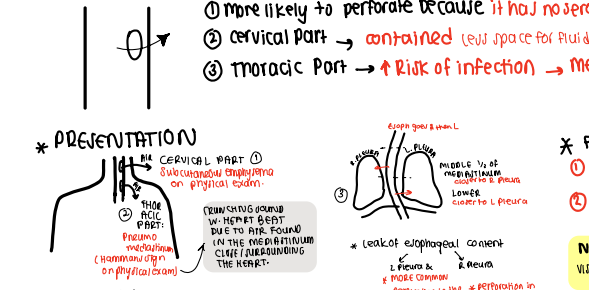 ① more likely to perforate because it has no sero
② cervical part → contained less space for fluid
③ Thoracic Part → ↑ Risk of infection → me
* PRESENTATION
AIR
CERVICAL PART ①
Subcutaneous emphysema
on physical exam.
AIR
② THOR
ACIC
PART:
Pneumo
mediastinum
(Hammans sign
on physical exam)
CRUNCHING SOUND
W. HEART BEAT
DUE TO AIR FOUND
IN THE MEDIASTINUM
CLOSE/SURROUNDING
THE HEART.
esoph goes R then L
R. PLEURA
L. PLEURA
③
MIDDLE 1/2 of
MEDIASTINUM
closer to R pleura
LOWER
closer to L pleura
* leak of esophageal content
L Pleura &
R Pleura
* MORE COMMON
* perforation in
*
①
②
N